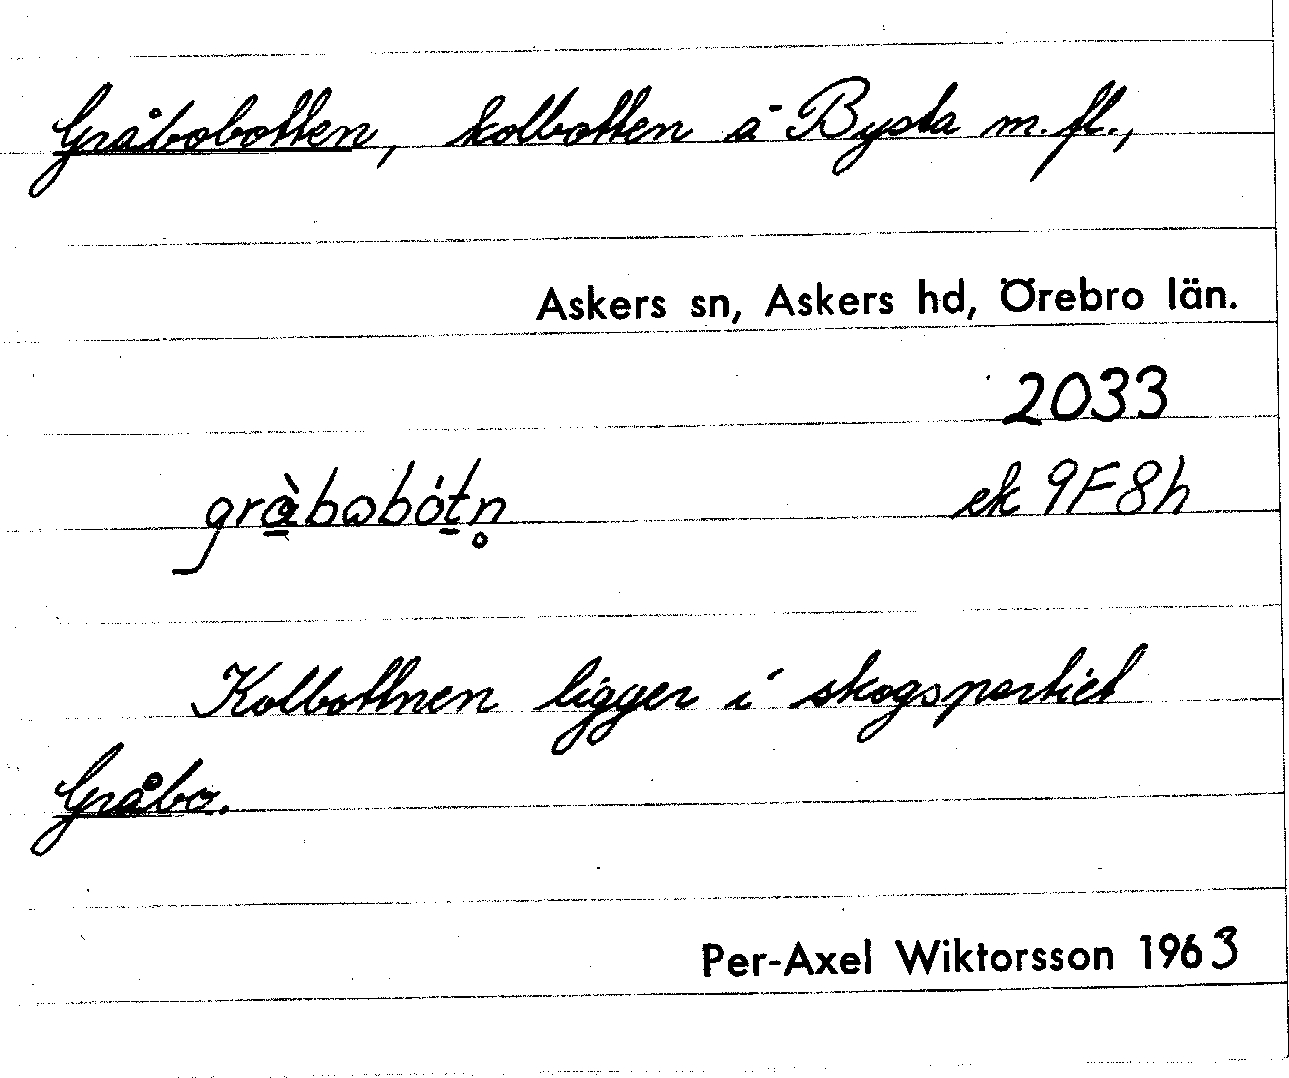 Gråbobotten, kolbotten å Bysta m.fl.,
Askers sn, Askers hd, Örebro län.
2033
gràbobótn̥
ek 9F8h
Kolbottnen ligger i skogspartiet
Gråbo.
Per-Axel Wiktorsson 1963